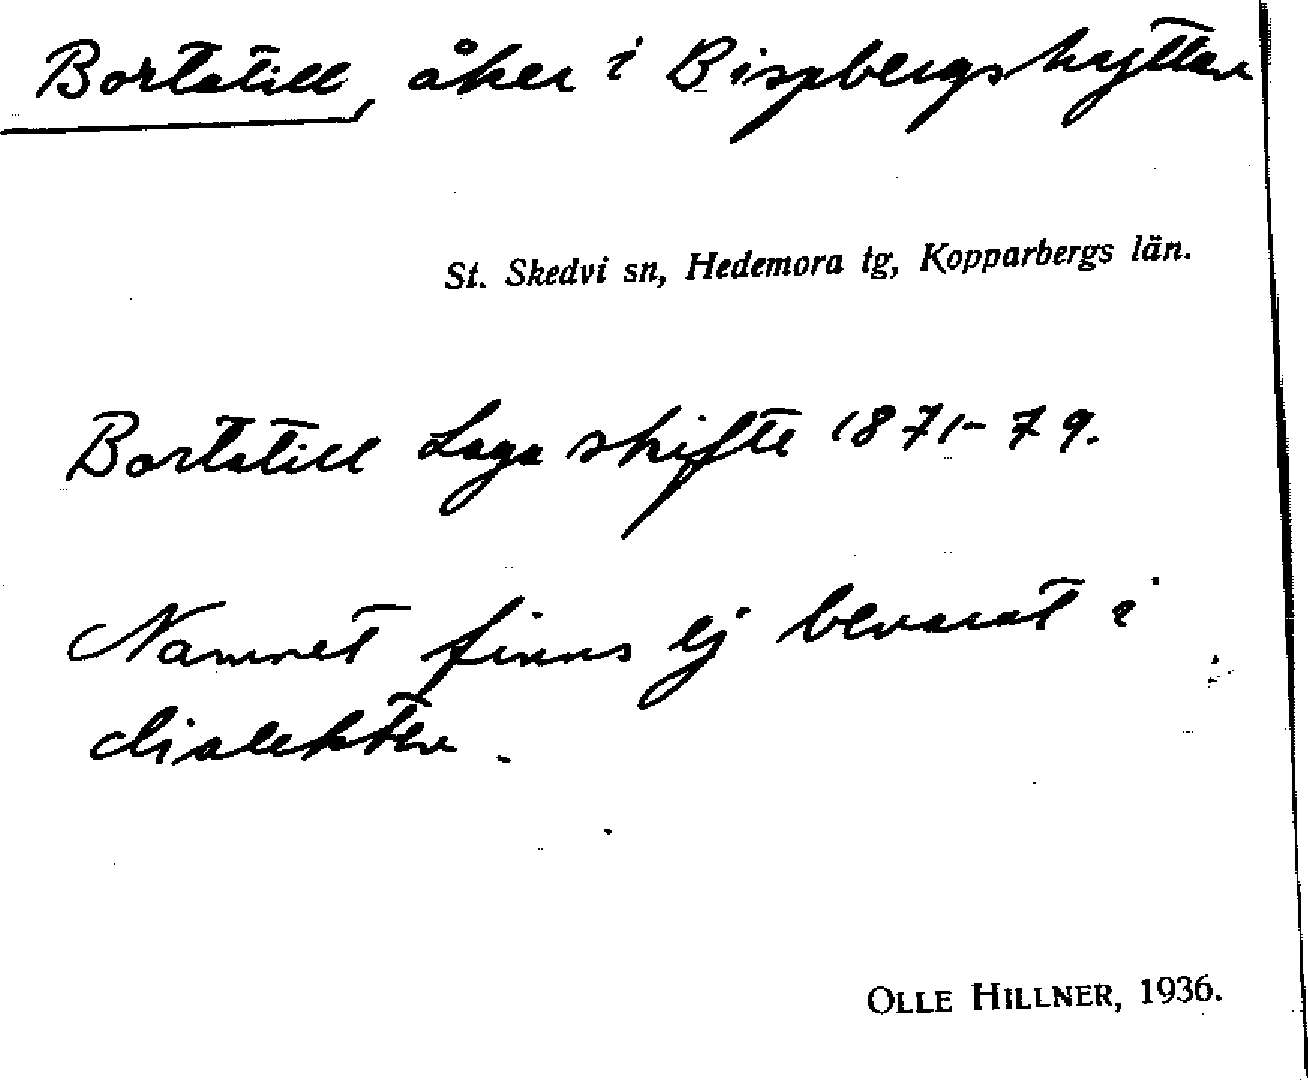 Bortatill, åker i Bispbergshyttan
St. Skedvi sn, Hedemora tg, Kopparbergs län.
Bortatill Laga skifte 1871-79.
Namnet finns ej bevarat i
dialekten.
OLLE HILLNER, 1936.